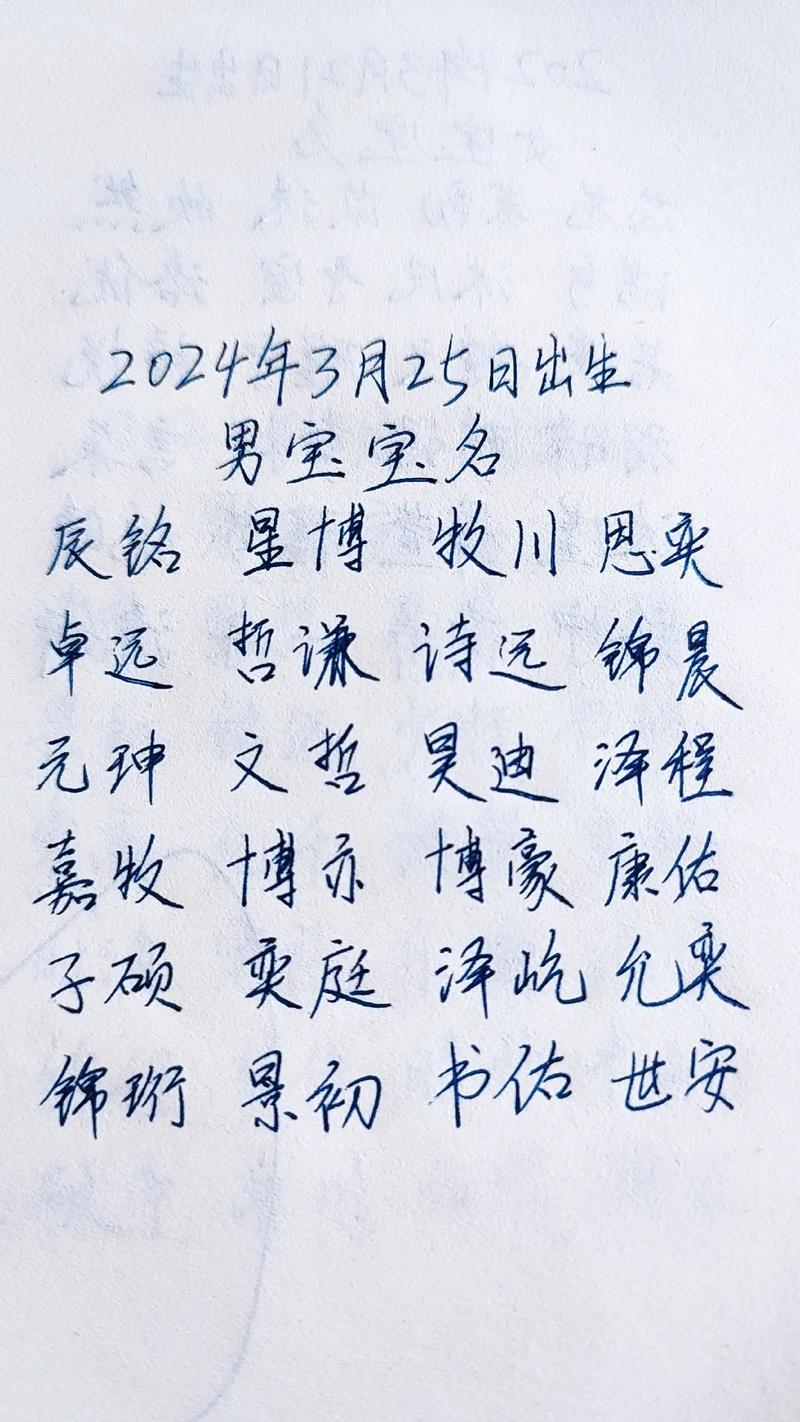 2024年3月25日出生
男宝宝名
辰铭 星博 牧川 恩奕
卓远 哲谦 诗远 锦晨
元珅 文哲 昊迪 泽程
嘉牧 博亦 博豪 康佑
子硕 奕庭 泽屹 允奕
锦珩 景初 书佑 世安